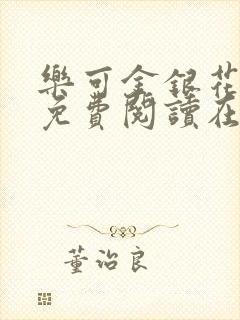 樂可金銀花
免費閱讀在
董治良